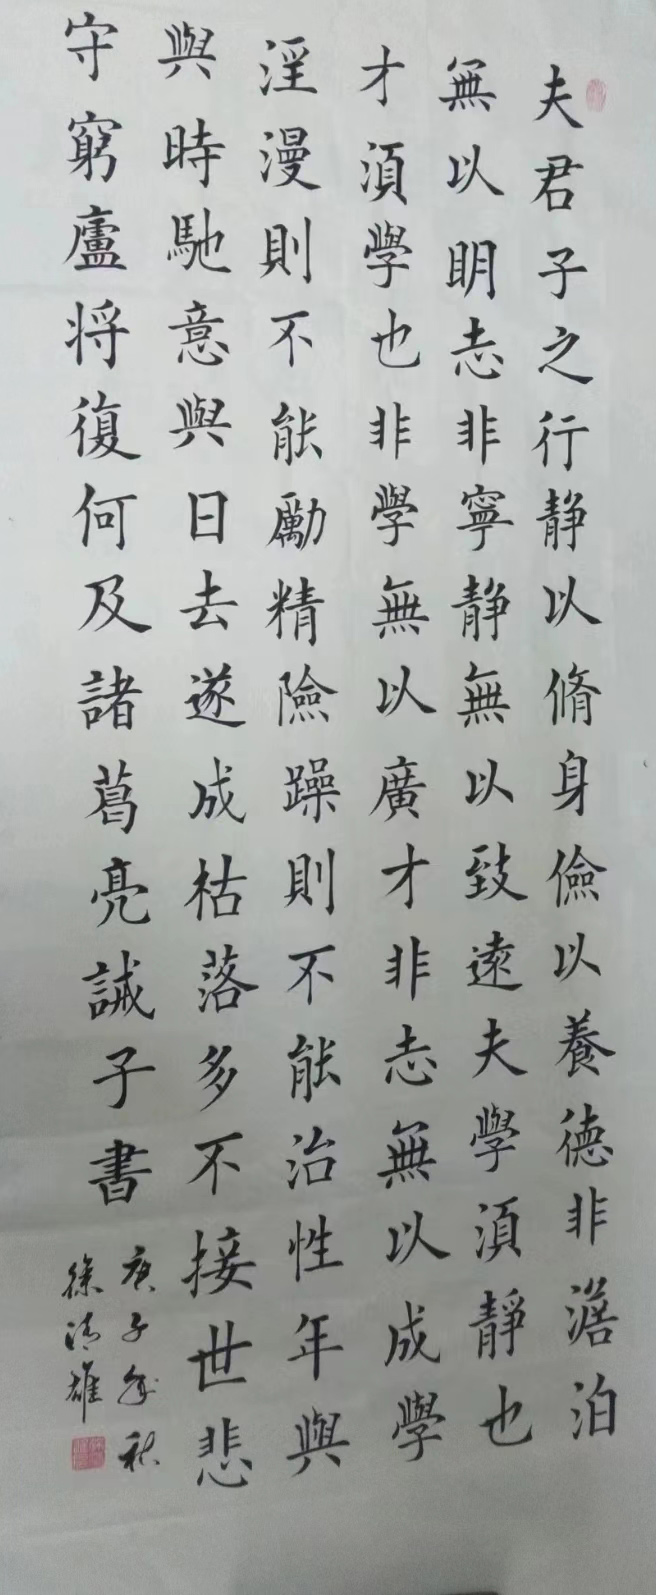 夫君子之行静以脩身儉以養德非澹泊
無以明志非寧静無以致遠夫學須静也
才須學也非學無以廣才非志無以成學
淫漫則不能勵精險躁則不能治性年與
與時馳意與日去遂成枯落多不接世悲
守窮廬将復何及諸葛亮誡子書
庚子年秋
徐清雄